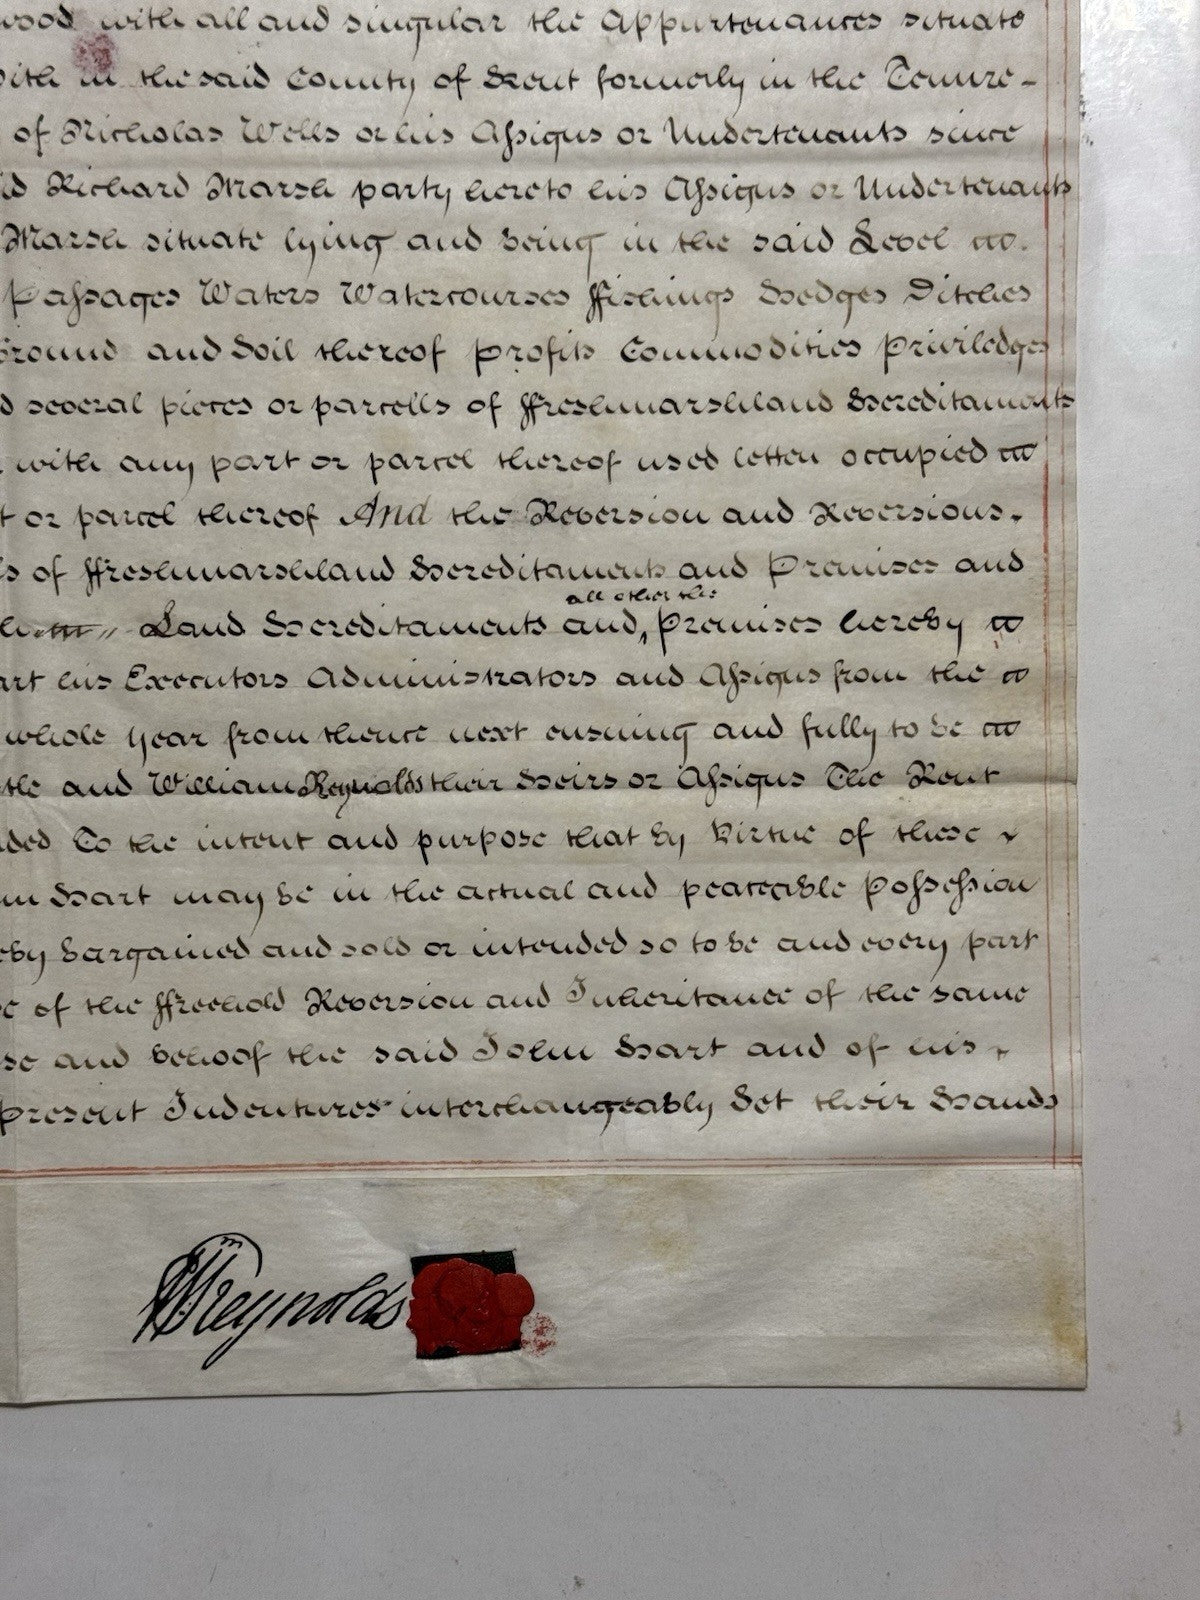 wood with all and singular the Appurtenances situate
with in the said County of Kent formerly in the Tenure
of Nicholas Wells or his Assigns or Undertenants since
id Richard Marsh party hereto his Assigns or Undertenants
Marsh situate lying and being in the said Level
Passages Waters Watercourses ffishings Hedges Ditches
Ground and Soil thereof Profits Commodities Priviledges
d several pieces or parcells of ffreshmarshland Hereditaments
with any part or parcel thereof used letten occupied
t or parcel thereof And the Reversion and Reversions
s of ffreshmarshland Hereditaments and Premises and
all other the
Land Hereditaments and ‸ Premises hereby
art his Executors Administrators and Assigns from the
whole year from thence next ensuing and fully to be
tle and William Reynolds their Heirs or Assigns The Rent
ded To the intent and purpose that by Virtue of these
m Hart may be in the actual and peaceable Possession
eby bargained and sold or intended so to be and every part
e of the ffreehold Reversion and Inheritance of the same
se and behoof the said John Hart and of his
Present Indentures interchangeably Set their Hands
Wm Reynolds